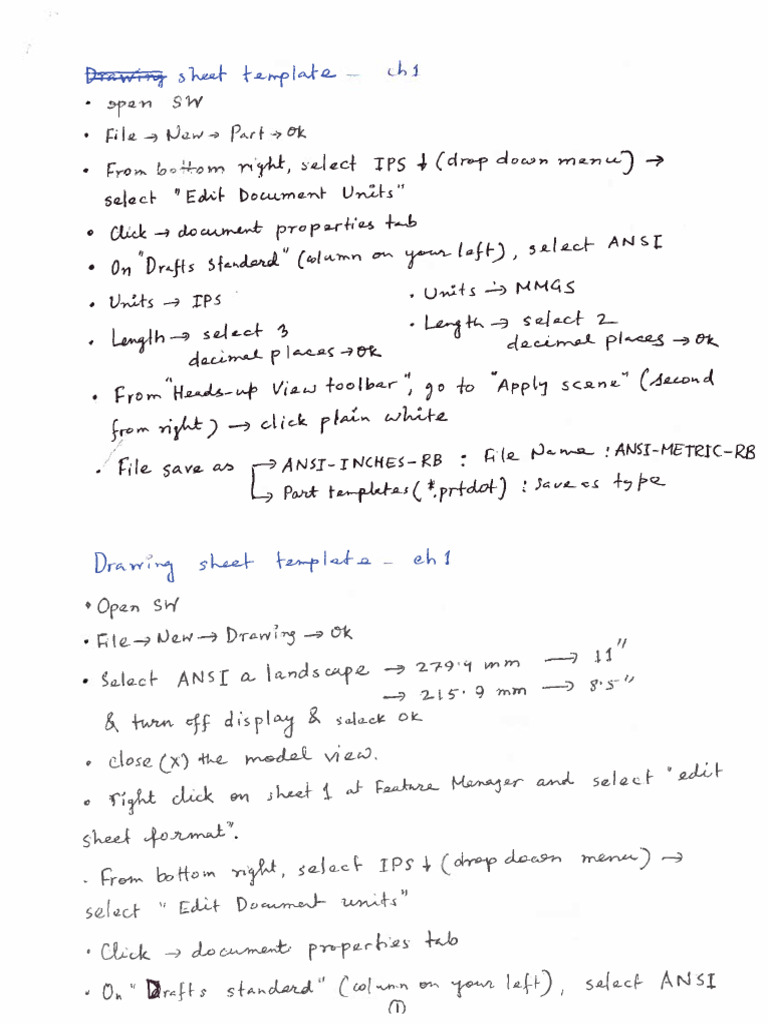 Drawing sheet template - ch1
• open SW
• File → New → Part → Ok
• From bottom right, select IPS ↓ (drop down menu) →
select "Edit Document Units"
• Click → document properties tab
• On "Drafts Standard" (column on your left), select ANSI
• Units → IPS
• Units → MMGS
• Length → select 3
decimal places → ok
• Length → select 2
decimal places → ok
• From "Heads-up View toolbar", go to "Apply scene" (second
from right) → click plain white
• File save as → ANSI-INCHES-RB : File Name : ANSI-METRIC-RB
→ Part templates (*.prtdot) : save as type
Drawing sheet template - ch1
• Open SW
• File → New → Drawing → Ok
• Select ANSI a landscape → 279.4 mm → 11"
→ 215.9 mm → 8.5"
& turn off display & select OK
• close (x) the model view.
• right click on sheet 1 at Feature Manager and select "edit
sheet format".
• From bottom right, select IPS ↓ (drop down menu) →
select "Edit Document units"
• Click → document properties tab
• On "Drafts standard" (column on your left), select ANSI
1